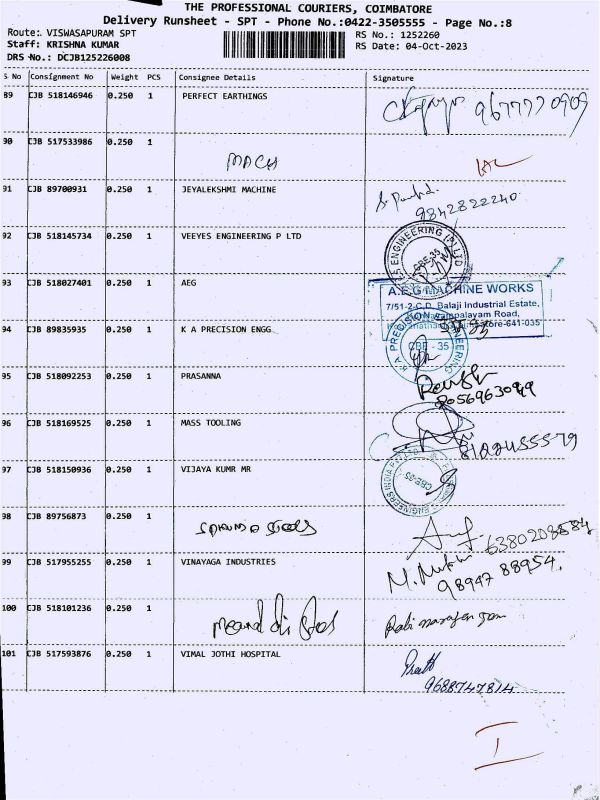 THE PROFESSIONAL COURIERS, COIMBATORE
Delivery Runsheet - SPT - Phone No.:0422-3505555 - Page No.:8
Route: VISWASAPURAM SPT
RS No.: 1252260
Staff: KRISHNA KUMAR
RS Date: 04-Oct-2023
DRS No.: DCJB125226008
S No Consignment No Weight PCS Consignee Details Signature
89 CJB 518146946 0.250 1 PERFECT EARTHINGS
90 CJB 517533986 0.250 1
MACH
91 CJB 89700931 0.250 1 JEYALEKSHMI MACHINE
9842822240
92 CJB 518145734 0.250 1 VEEYES ENGINEERING P LTD
CBE-35
93 CJB 518027401 0.250 1 AEG
A.E.G MACHINE WORKS
7/51-2-C.D, Balaji Industrial Estate,
94 CJB 89835935 0.250 1 K A PRECISION ENGG.
K A PRECISION ENGINEERING
CBE - 35
95 CJB 518092253 0.250 1 PRASANNA
96 CJB 518169525 0.250 1 MASS TOOLING
97 CJB 518150936 0.250 1 VIJAYA KUMR MR
CBE-35
98 CJB 89756873 0.250 1
99 CJB 517955255 0.250 1 VINAYAGA INDUSTRIES
98947 88954.
100 CJB 518101236 0.250 1
101 CJB 517593876 0.250 1 VIMAL JOTHI HOSPITAL
9688747814